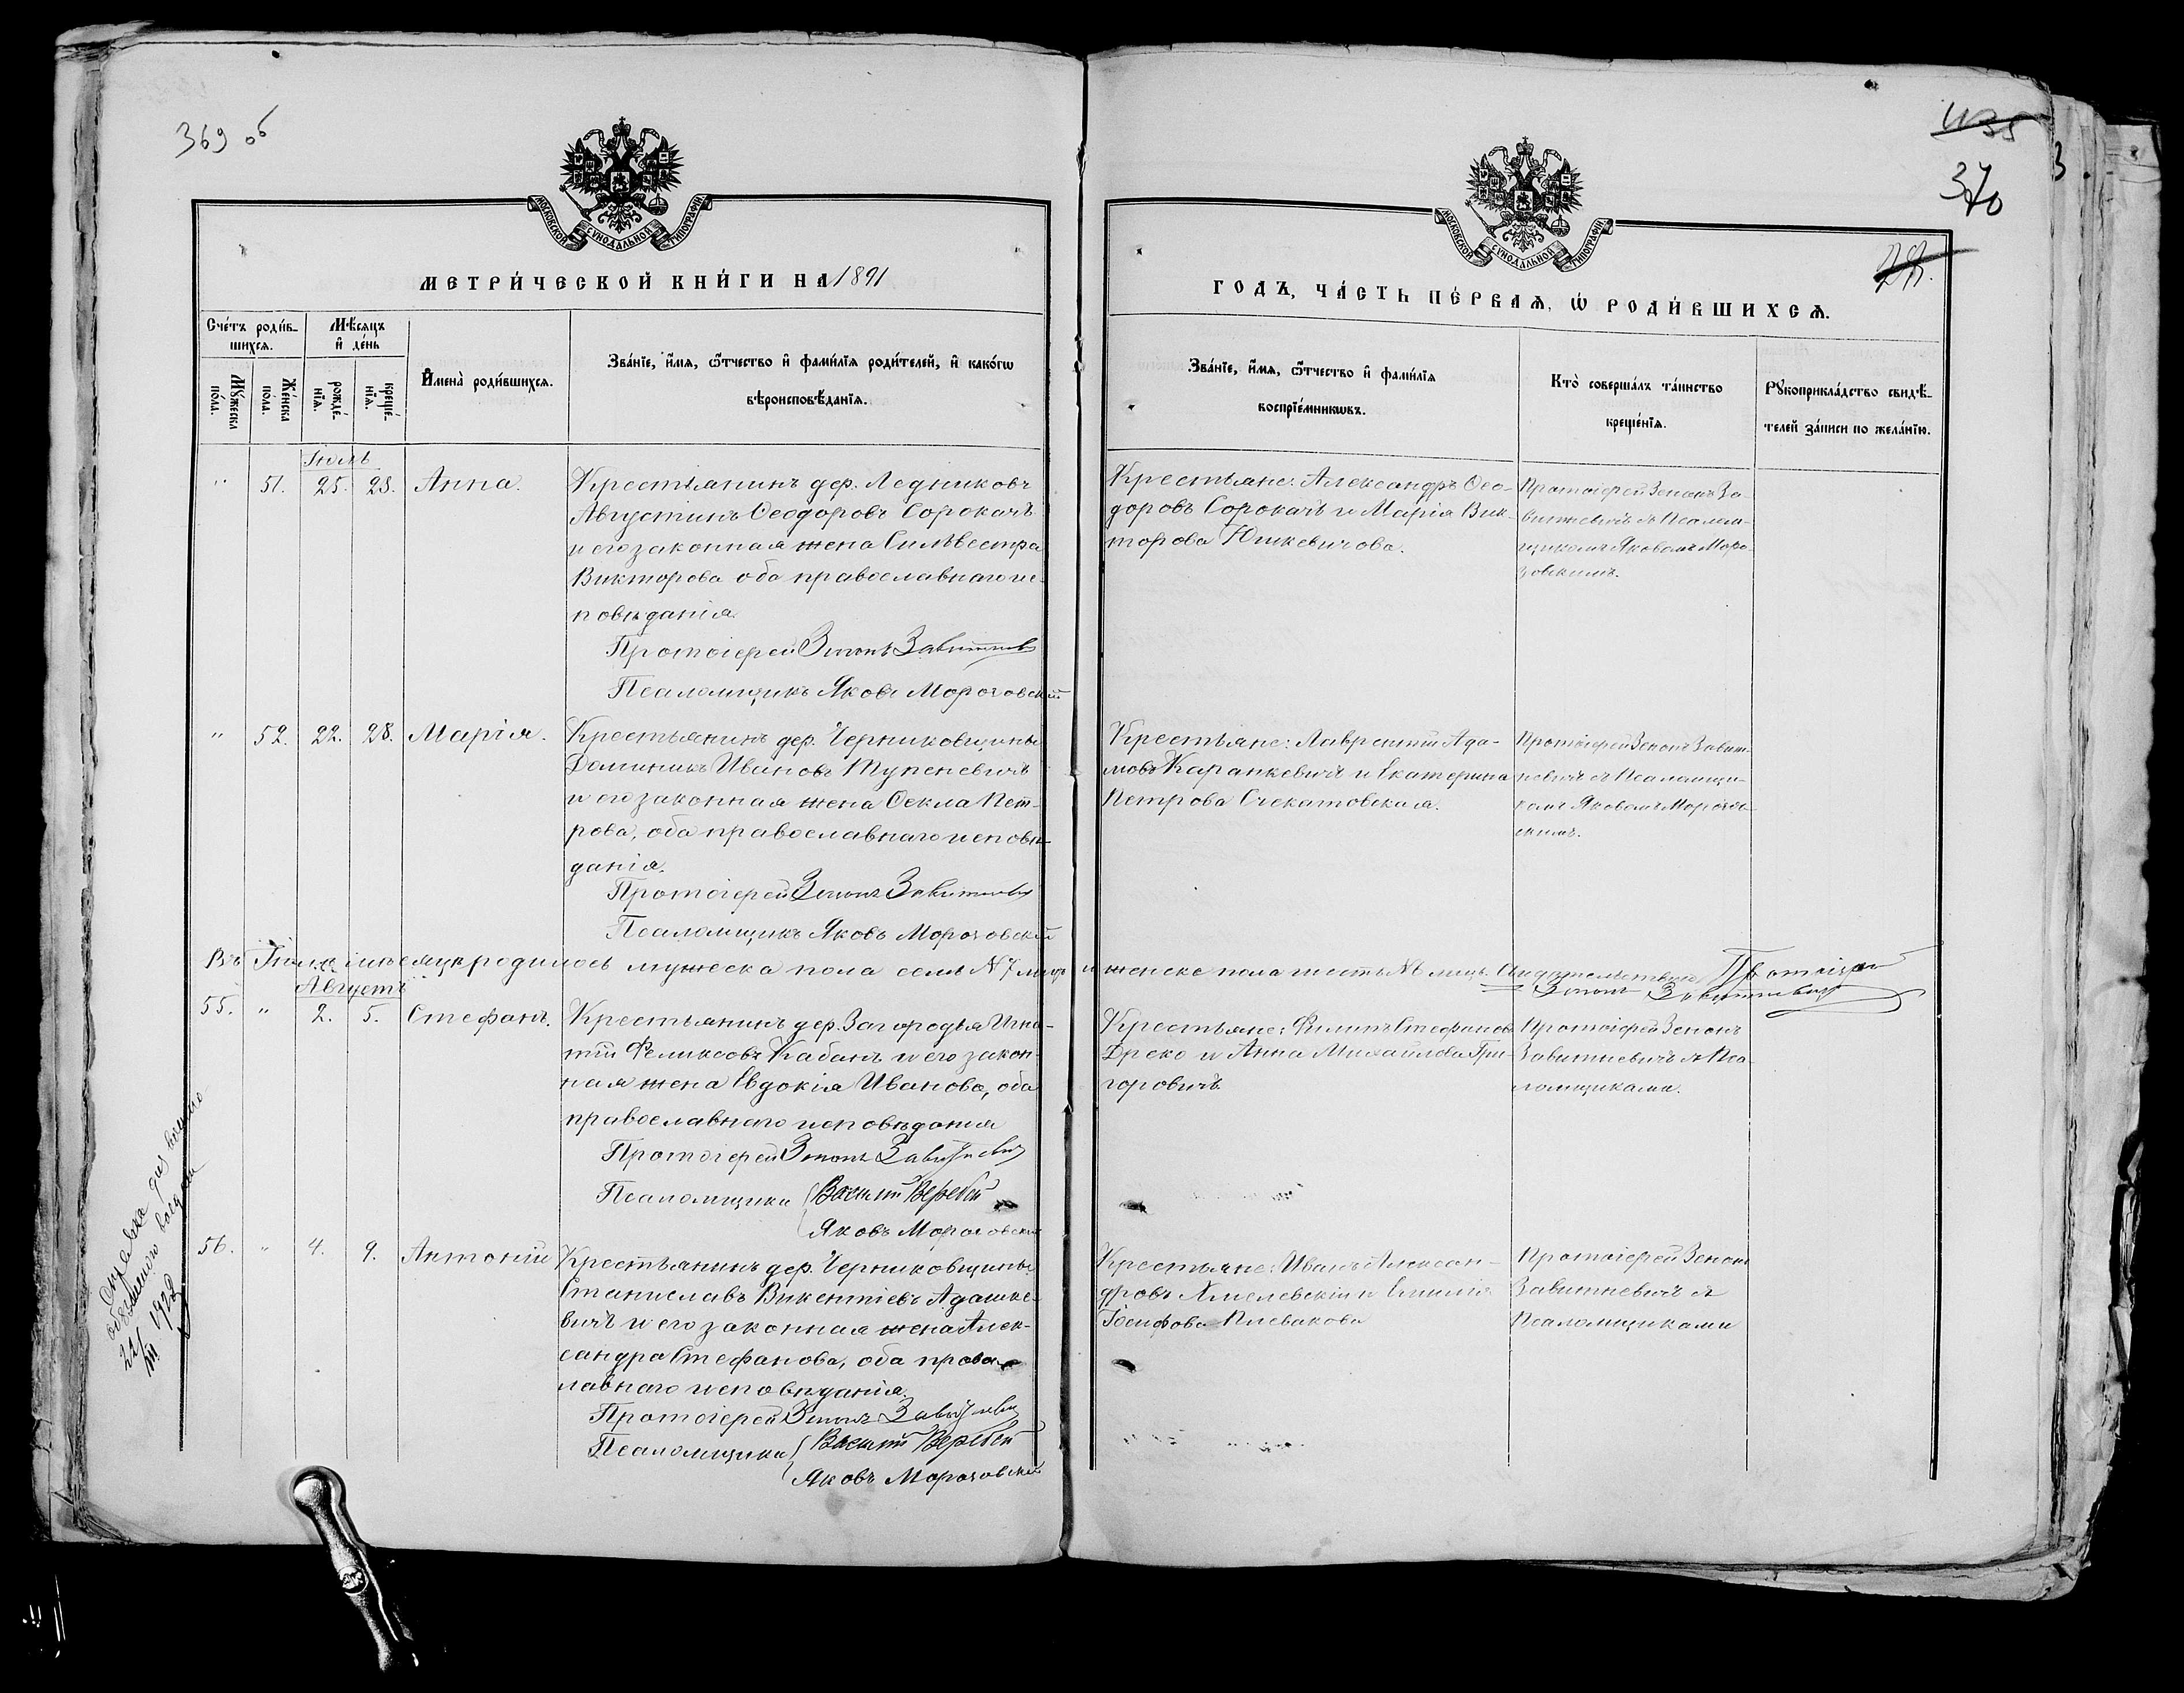 369 об
МОСКОВСКОЙ СѴНОДАЛЬНОЙ ТИПОГРАФІИ
МЕТРИ́ЧЕСКОЙ КНИ́ГИ НА 1891
Сче́тъ роди́в-
шихсѧ.
Мѣ́сѧцъ
и҆ де́нь
И҆мена̀ роди́вшихсѧ.
Зва́нїе, и҆́мѧ, ѻ҆́тчество и҆ фами́лїѧ роди́телей, и҆ како́гѡ
вѣроисповѣ́данїѧ.
Мꙋ́жеска
по́ла.
Же́нска
по́ла.
рожде́-
нїѧ.
креще́-
нїѧ.
Іюль
" 51. 25. 28. Анна.
Крестьянинъ дер. Ледниковъ
Августинъ Ѳеодоровъ Сорокачъ
и его законная жена Сильвестра
Викторова оба православнаго ис-
повѣданія.
Протоіерей Зенонъ Завитневичъ
Псаломщикъ Яковъ Морозовскій
" 52. 22. 28. Марія.
Крестьянинъ дер. Черниковщины
Доминикъ Ивановъ Тупеневичъ
и его законная жена Ѳекла Пет-
рова, оба православнаго исповѣ-
данія.
Протоіерей Зенонъ Завитневичъ
Псаломщикъ Яковъ Морозовскій
Въ Іюлѣ мѣсяцѣ родилось мужеска пола семь №7 лицъ и женска пола шесть №6 лицъ. Протоіерей
Зенонъ Завитневичъ
Августъ
55. " 2. 5. Стефанъ.
Крестьянинъ дер. Загородья Игна-
тій Феликсовъ Кабанъ и его закон-
ная жена Евдокія Иванова, оба
православнаго исповѣданія
Протоіерей Зенонъ Завитневичъ
Псаломщики Василій Веребей
Яковъ Морозовскій
56. " 4. 9. Антоній
Крестьянинъ дер. Черниковщины
Станиславъ Викентіевъ Адашке-
вичъ и его законная жена Алек-
сандра Стефанова, оба правос-
лавнаго исповѣданія.
Протоіерей Зенонъ Завитневичъ
Псаломщики Василій Веребей
Яковъ Морозовскій
Справка
22/III 1928
370
МОСКОВСКОЙ СѴНОДАЛЬНОЙ ТИПОГРАФІИ
ГО́ДЪ, ЧА́СТЬ ПЕ́РВАѦ, Ѡ҆ РОДИ́ВШИХСѦ.
Зва́нїе, и҆́мѧ, ѻ҆́тчество и҆ фами́лїѧ
воспрїе́мникѡвъ.
Кто̀ соверша́лъ та́инство
креще́нїѧ.
Рꙋкоприкла́дство свидѣ́-
телей за́писи по жела́нїю.
Крестьяне: Александръ Ѳео-
доровъ Сорокачъ и Марія Вик-
торова Юшкевичова.
Протоіерей Зенонъ За-
витневичъ съ Псалом-
щикомъ Яковомъ Моро-
зовскимъ.
Крестьяне: Лаврентій Ада-
мовъ Каранкевичъ и Екатерина
Петрова Счекатовская.
Протоіерей Зенонъ Завит-
невичъ съ Псаломщи-
комъ Яковомъ Морозов-
скимъ.
Крестьяне: Филипъ Стефановъ
Дреко и Анна Михайлова Гри-
горовичъ
Протоіерей Зенонъ
Завитневичъ съ Пса-
ломщиками.
Крестьяне: Иванъ Алексан-
дровъ Хмелевскій и Емилія
Іосифова Плевакова
Протоіерей Зенонъ
Завитневичъ съ
Псаломщиками